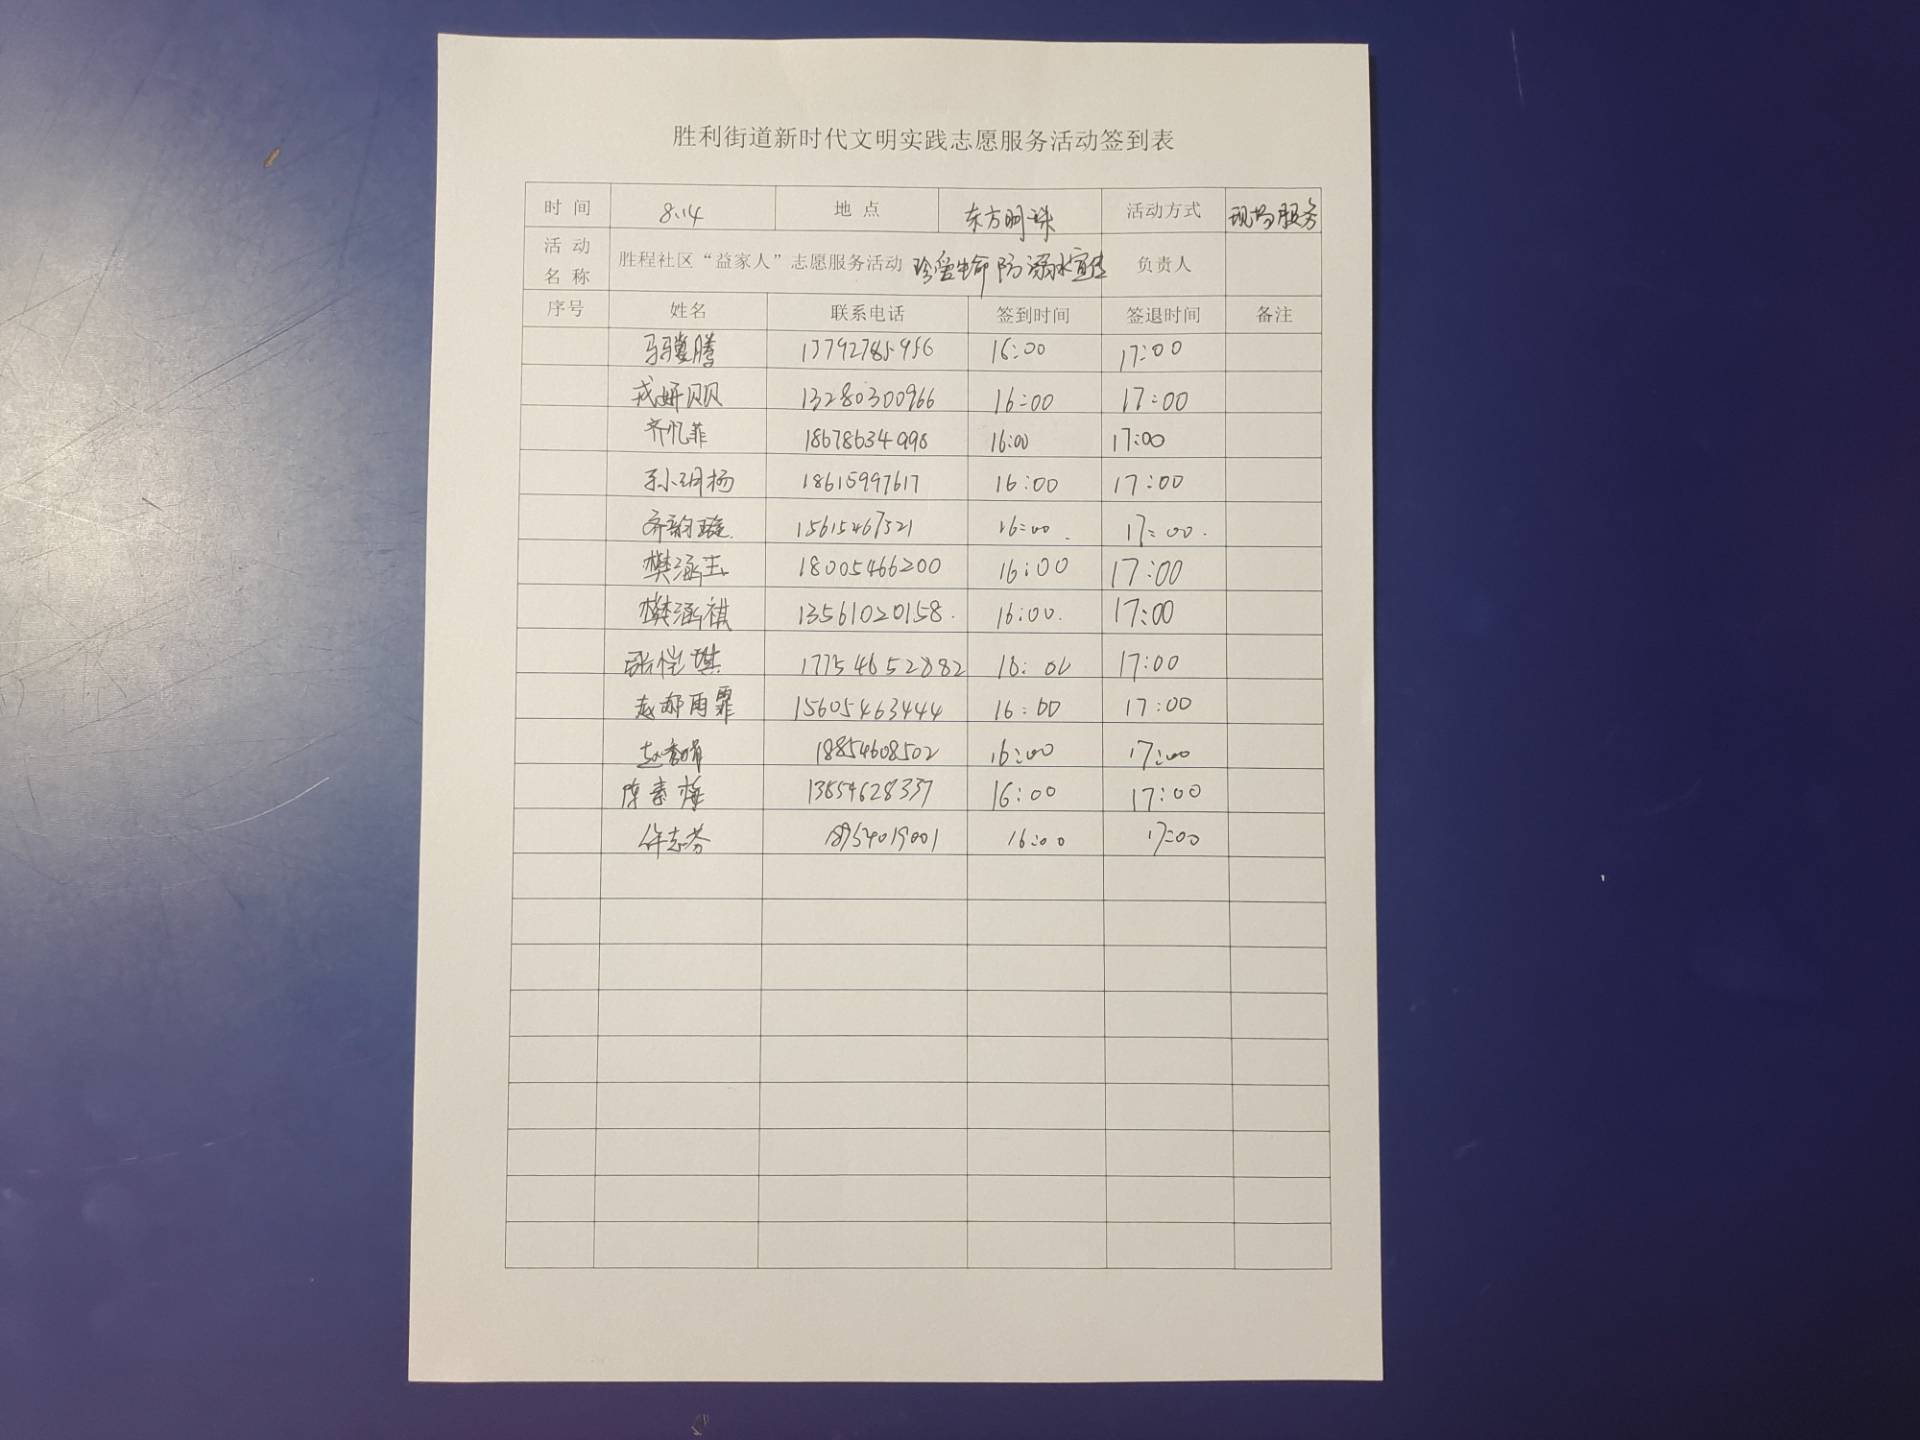 胜利街道新时代文明实践志愿服务活动签到表
时 间 8.14 地 点 东方明珠 活动方式 现场服务
活 动 名 称 胜程社区“益家人”志愿服务活动 珍爱生命 防溺水宣传 负责人
序号 姓名 联系电话 签到时间 签退时间 备注
马骥腾 13792785956 16:00 17:00
戎妍贝贝 13280300966 16:00 17:00
齐忆菲 18678634998 16:00 17:00
孙玥杨 18615997617 16:00 17:00
齐韵璇 15615467521 16:00 17:00
樊涵玉 18005466200 16:00 17:00
樊涵祺 13561020158 16:00 17:00
张恺琪 17754652882 16:00 17:00
赵郝雨霏 15605463444 16:00 17:00
18854608502 16:00 17:00
陈素梅 13854628337 16:00 17:00
许志芬 18954019001 16:00 17:00